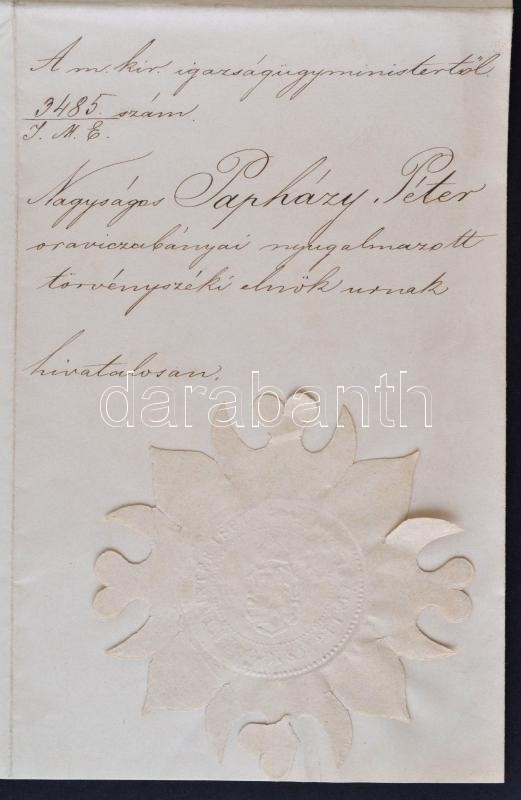 A m. kir. igazságügyministertől.
3485. szám.
I. M. E.
Nagyságos Papházy Péter
oraviczabányai nyugalmazott
törvényszéki elnök urnak
hivatalosan.
darabanth